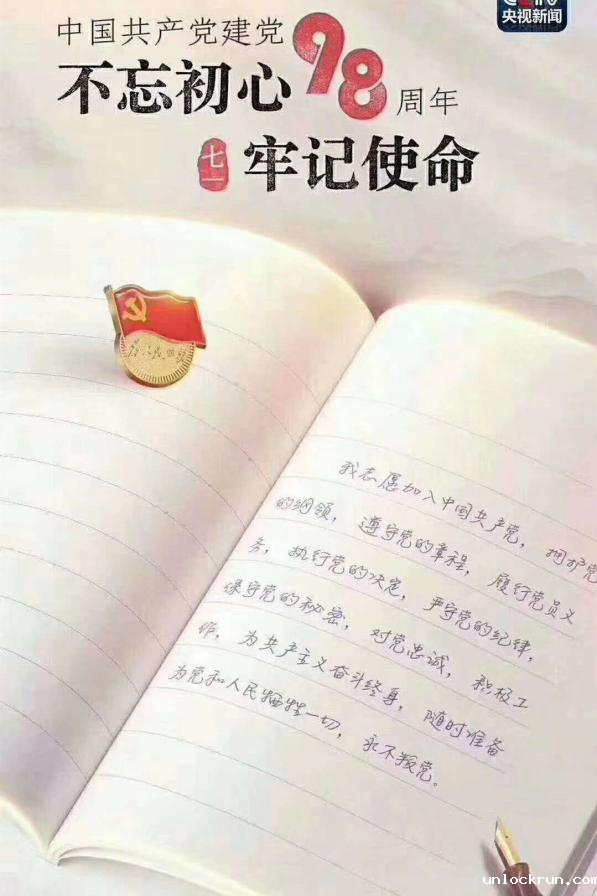 央视新闻
中国共产党建党98周年
不忘初心
七一
牢记使命
为人民服务
我志愿加入中国共产党，拥护党
的纲领，遵守党的章程，履行党员义
务，执行党的决定，严守党的纪律，
保守党的秘密，对党忠诚，积极工
作，为共产主义奋斗终身，随时准备
为党和人民牺牲一切，永不叛党。
unlockrun.com